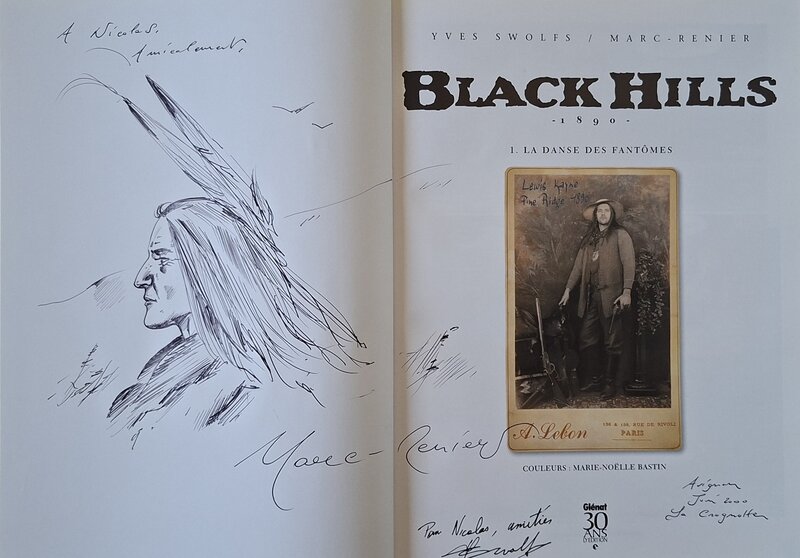 A Nicolas,
Amicalement,
Marc-Renier
YVES SWOLFS / MARC-RENIER
BLACK HILLS
-1890-
1. LA DANSE DES FANTÔMES
Lewis Kayne
Pine Ridge 1890
A. Lebon
RUE DE RIVOLI
PARIS
COULEURS : MARIE-NOËLLE BASTIN
Pour Nicolas, amitiés
Swolfs
Glénat
30
ANS
D'ÉDITION
Avignon
Juin 2000
La Crognotte